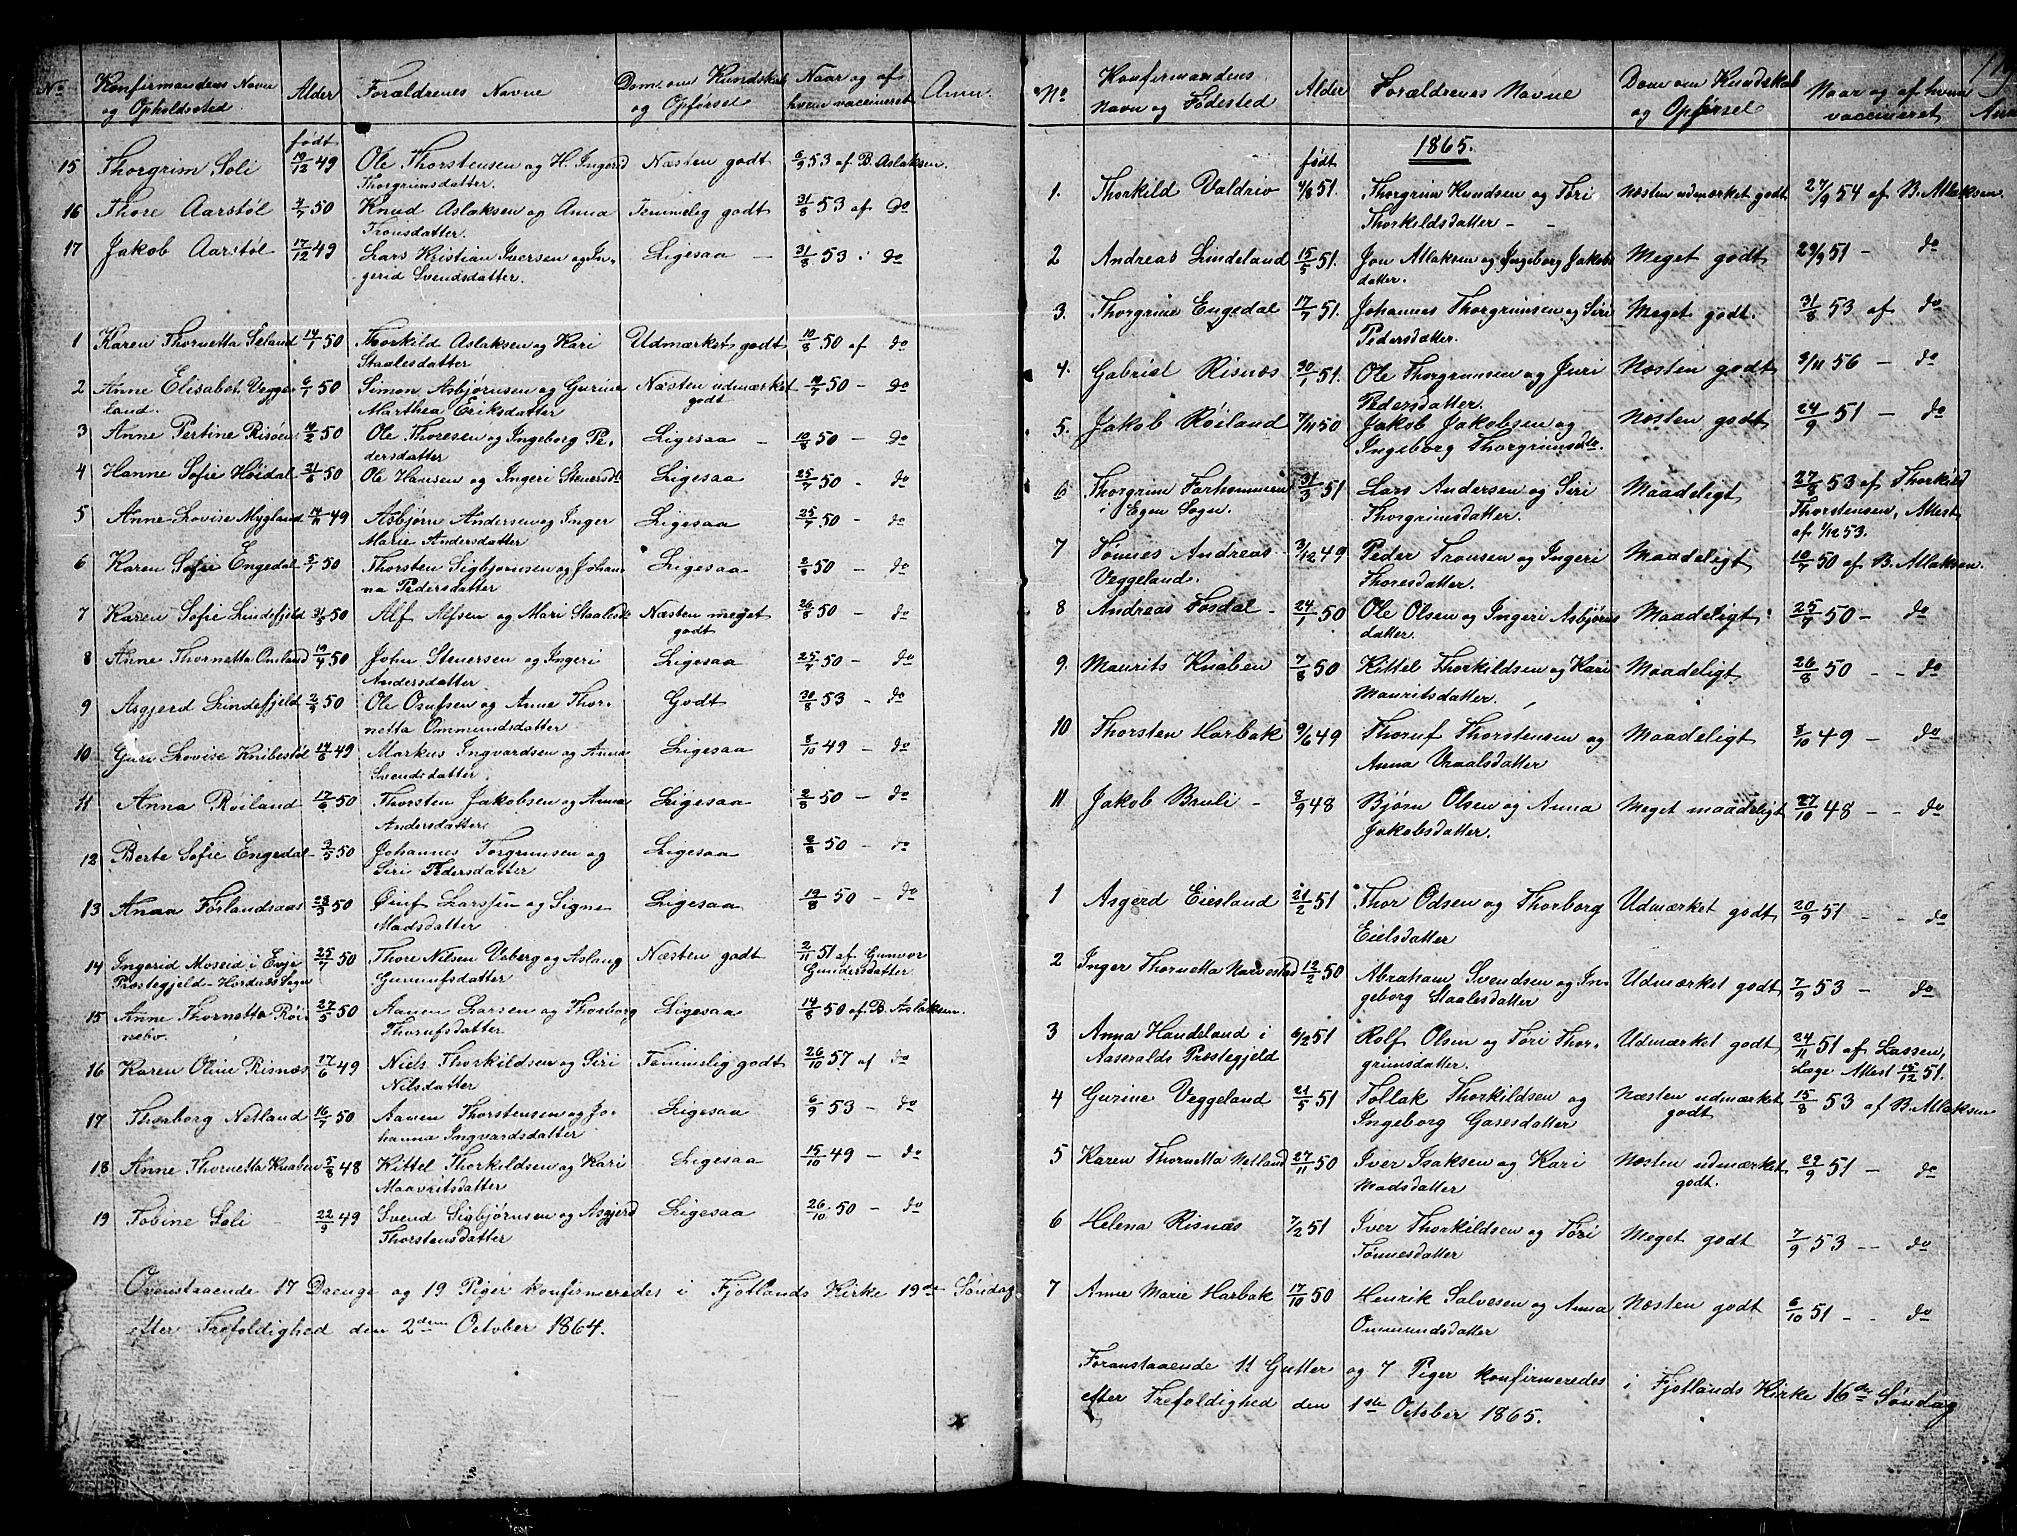 No
Konfirmandens Navn
og Opholdssted
Alder
Forældrenes Navne
Dom om Kundskab
og Opførsel
Naar og af
hvem vaccineret
Anm.
født
15 Thorgrim Soli 19/12 49 Ole Thorstensen og H. Ingerid Næsten godt 6/9 53 af B. Aslaksen.
Thorgrimsdatter.
16 Thore Aarstøl 4/7 50 Knud Aslaksen og Anna Temmelig godt 31/8 53 af do
Tronsdatter.
17 Jakob Aarstøl 17/12 49 Lars Kristian Iversen og In- Ligesaa 31/8 53 do
gerid Svendsdatter.
1 Karen Thornetta Seland 14/1 50 Thorkild Aslaksen og Kari Udmærket godt 10/8 50 af do
Staalesdatter
2 Anne Elisabet Vegge- 6/1 50 Simon Asbjørnsen og Gurine Næsten udmærket 10/7 50 - do
land. Marthea Eriksdatter godt
3 Anne Pertine Risøen 10/2 50 Ole Thoresen og Ingeborg Pe- Ligesaa - 10/8 50 - do
dersdatter
4 Hanne Sofie Høidal 31/6 50 Ole Hansen og Ingeri Steuersdt Ligesaa 25/7 50 - do
5 Anne Lovise Mygland 14/11 49 Asbjørn Andersen og Inger Ligesaa 25/7 50 - do
Marie Andersdatter
6 Karen Sofie Engedal 5/1 50 Thorsten Sigbjørnsen og Johan- Ligesaa 2/8 50 - do
na Pedersdatter
7 Karen Sofie Lindefjeld 31/5 50 Alf Alfsen og Mari Staalesdt Næsten meget 26/8 50 - do
godt
8 Anne Thornetta Omland 19/4 50 John Steuersen og Ingeri Ligesaa 25/7 50 - do
Andersdatter
9 Asgjerd Lindefjeld 2/4 50 Ole Osufsen og Anne Thor- Godt 30/8 53 - do
netta Ommundsdatter
10 Guri Lovise Knibestøl 14/6 49 Markus Ingvardsen og Anna Ligesaa 8/10 49 - do
Svendsdatter
11 Anna Røiland 17/6 50 Thorsten Jakobsen og Anna Ligesaa 2/8 50 - do
Andersdatter
12 Berte Sofie Engedal 3/5 50 Johannes Torgrimsen og Ligesaa 2/8 50 - do
Siri Pedersdatter
13 Anna Førlandsaas 23/3 50 Øiuf Larssen og Signe Ligesaa 19/8 50 - do
Madsdatter
14 Ingerid Moseid i Evje 25/7 50 Thore Nilsen Veberg og Aslaug Næsten godt 2/11 51 af Gunvor
Præstegjeld - Hordnæs Sogn Gunnufsdatter Gundersdatter
15 Anne Thornetta Røi- 27/5 50 Aanen Larsen og Thorborg Ligesaa 14/8 50 af B. Aslaksen.
nebo. Thorufsdatter
16 Karen Oline Risnæs 17/6 49 Niels Thorkildsen og Siri Temmelig godt 26/10 57 af do
Nilsdatter
17 Thorborg Netland 16/7 50 Aanen Thorstensen og Jo- Ligesaa 6/9 53 - do
hanna Ingvardsdatter
18 Anne Thornetta Knaben 5/8 48 Kittel Thorkildsen og Kari Ligesaa 15/10 49 - do
Maavritsdatter
19 Tobine Soli - 22/9 49 Svend Sigbjørnsen og Asgjerd Ligesaa 26/10 50 - do
Thorstensdatter
Ovenstaaende 17 Drenge og 19 Piger konfirmeredes i Fjotlands Kirke 19de Søndag
efter Trefoldighed den 2den October 1864.
No
Konfirmandens
Navn og Fødested
Alder
Forældrenes Navne
Dom om Kundskab
og Opførsel
Naar og af hvem
vaccineret
1865.
født
1. Thorkild Valdriv 4/8 51. Thorgrim Knudsen og Tøri Næsten udmærket godt 27/9 54 af B. Atlaksen.
Thorkildsdatter - -
2 Andreas Lindeland 15/5 51. Jon Atlaksen og Ingeborg Jakobs Meget godt 29/9 51 - do
datter.
3. Thorgrim Engedal 17/7 51. Johannes Thorgrimsen og Siri Meget godt. 31/8 53 af do
Pedersdatter.
4. Gabriel Risnæs 30/1 51. Ole Thorgrimsen og Juri Næsten godt 3/11 56 - do
Pedersdatter.
5. Jakob Røiland 7/11 50 Jakob Jakobsen og Næsten godt 24/9 51 - do
Ingeborg Thorgrimsdtr.
6 Thorgrim Forhommen 31/3 51 Lars Andersen og Siri Maadeligt 27/8 53 af Thorkild
i Egen Sogn. Thorgrimsdatter. Thorstensen, Attest
af 1/12 53.
7 Tønnes Andreas 3/12 49 Peder Tronsen og Ingeri Maadeligt 10/7 50 af B. Atlaksen.
Veggeland. Thoresdatter.
8 Andreas Fosdal - 24/1 50 Ole Olsen og Ingeri Asbjørns Maadeligt 25/7 50 - do
datter.
9. Maurits Knaben 7/8 50 Kittel Thorkildsen og Kari Maadeligt 26/8 50 - - do
Mauritsdatter
10 Thorsten Harbak 9/6 49 Thoruf Thorstensen og Maadeligt 8/10 49 - do
Anna Vraalsdatter
11 Jakob Bruli - 8/9 48 Bjørn Olsen og Anna Meget maadeligt 27/10 48 - - do
Jakobsdatter.
1 Asgerd Eiesland 21/2 51 Thor Odsen og Thorborg Udmærket godt 20/9 51 - - do
Eielsdatter
2 Inger Thornetta Narvestad 12/2 50 Abraham Svendsen og In- Udmærket godt 7/9 53 - do
geborg Staalesdatter
3 Anna Handeland i 6/2 51 Rolf Olsen og Tøri Thor- Udmærket godt 24/11 51 af Lassen,
Aaseralds Præstegjeld grimsdatter. Læge Attest 15/12 51.
4 Gurine Veggeland 21/5 51 Tollak Thorkildsen og Næsten udmærket 15/8 53 af B. Atlaksen
Ingeborg Gasesdatter godt
5 Karen Thornetta Netland 27/11 50 Iver Isaksen og Kari Næsten udmærket 29/9 51 - do
Madsdatter godt.
6 Helena Risnæs 7/2 51 Iver Thorkildsen og Tøri Meget godt 7/9 53 -- do
Tønnesdatter
7 Anne Marie Harbak 17/10 50 Henrik Salvesen og Anna Næsten godt 6/10 51 - - do
Ommundsdatter
Foranstaaende 11 Gutter og 7 Piger konfirmeredes i Fjotlands Kirke 16de Søndag
efter Trefoldighed den 1ste October 1865.